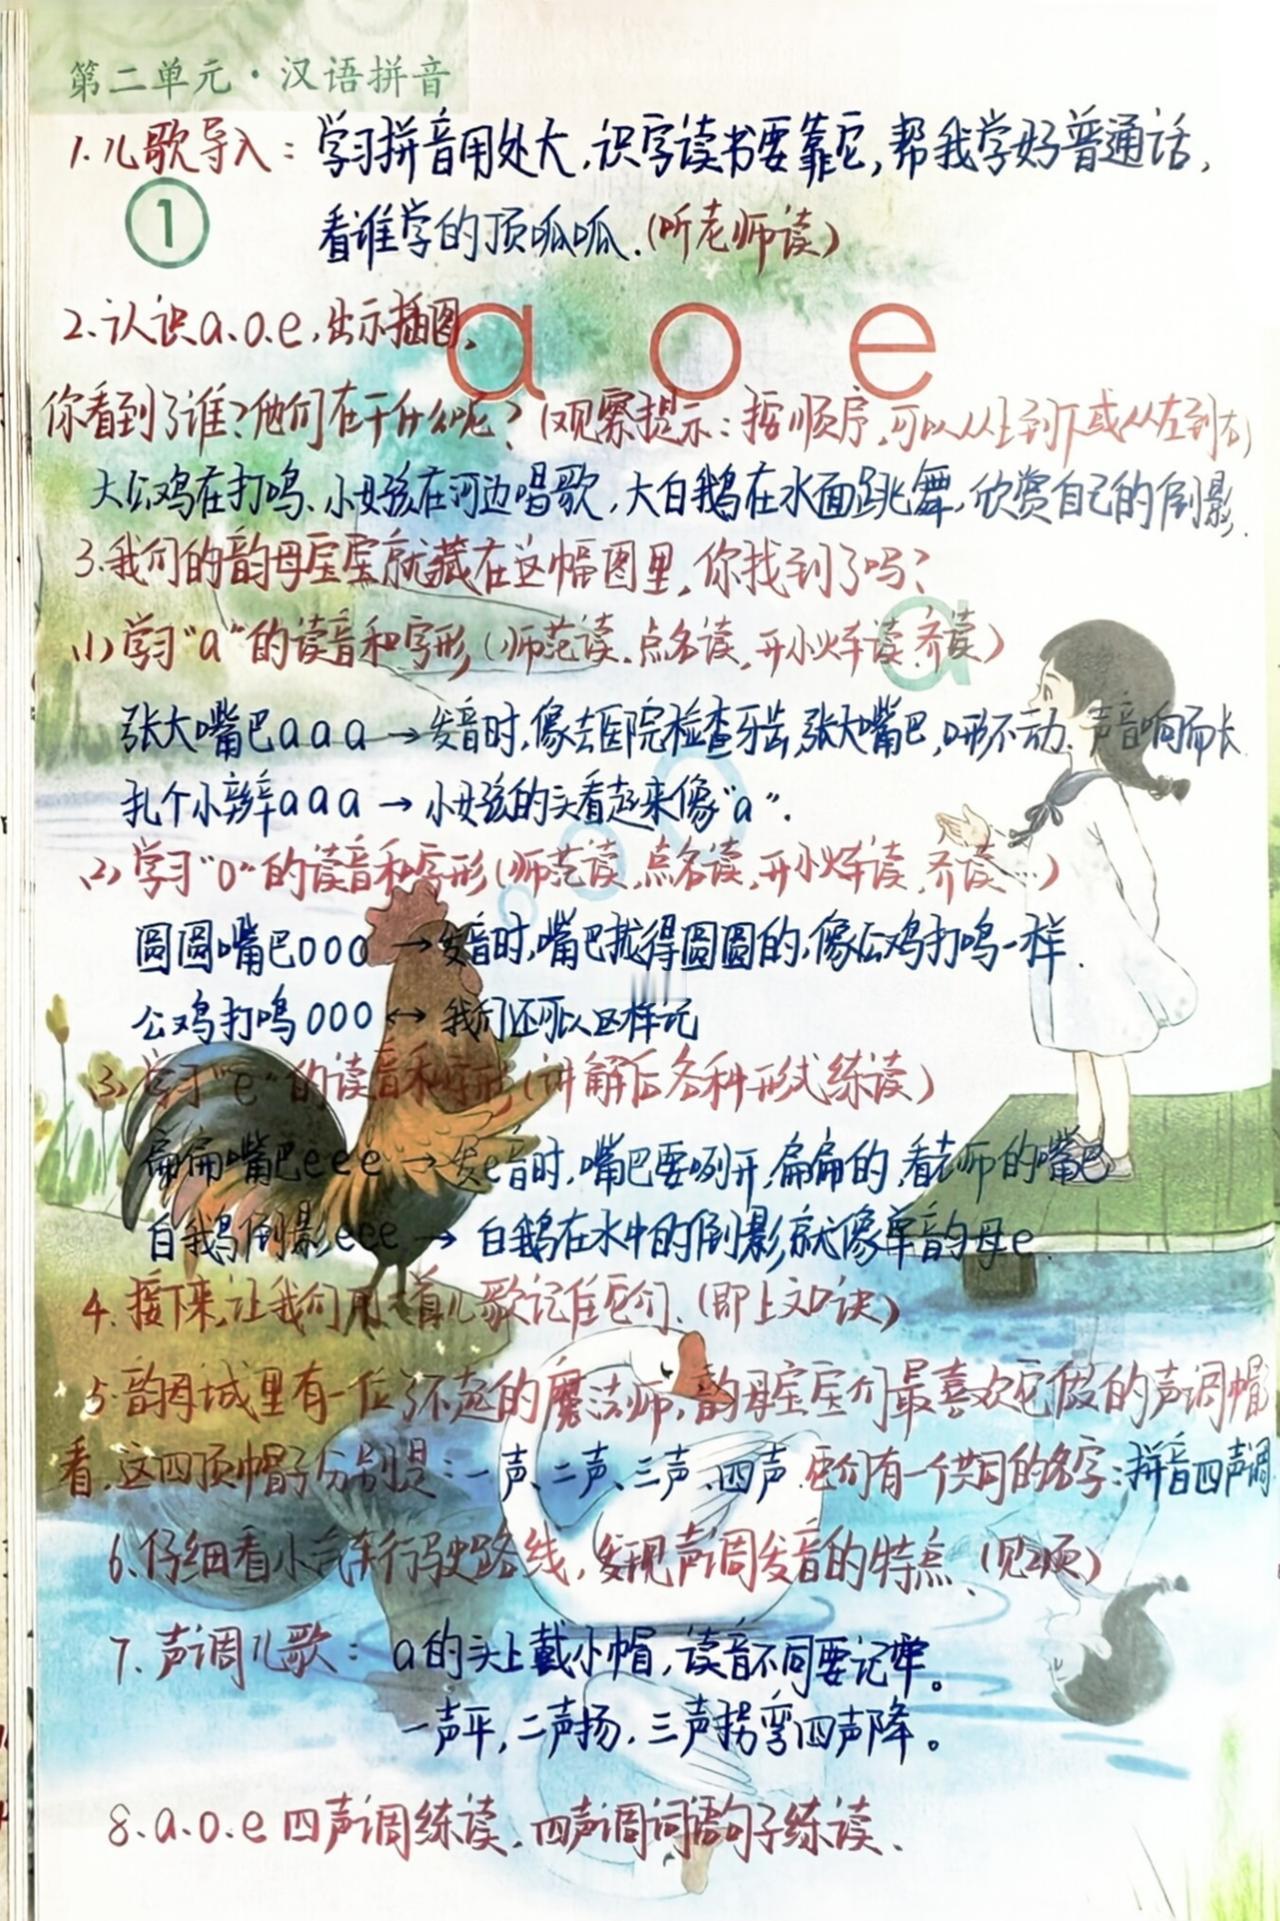 第二单元·汉语拼音
1.儿歌导入：学习拼音用处大，识字读书要靠它，帮我学好普通话，
①
看谁学的顶呱呱.(听老师读)
a o e
2.认识a.o.e,出示插图。
你看到了谁？他们在干什么呢？(观察提示：按顺序，可以从上到下或从左到右)
大公鸡在打鸣、小女孩在河边唱歌，大白鹅在水面跳舞，欣赏自己的倒影.
3.我们的韵母宝宝就藏在这幅图里，你找到了吗？
a
(1)学习"a"的读音和字形(师范读、点名读、开小火车读、齐读)
张大嘴巴aaa→发音时，像去医院检查牙齿，张大嘴巴，口形不动、声音响而长.
扎个小辫aaa→小女孩的头看起来像"a".
(2)学习"o"的读音和字形(师范读、点名读、开小火车读、齐读…)
圆圆嘴巴ooo→发音时，嘴巴拢得圆圆的，像公鸡打鸣一样.
公鸡打鸣ooo↔我们还可以这样记
(3)学习"e"的读音和字形(讲解后各种形式练读)
扁扁嘴巴eee→发e音时，嘴巴要咧开，扁扁的，看老师的嘴巴
白鹅倒影eee→白鹅在水中的倒影，就像单韵母e.
4.接下来，让我们用一首儿歌记住它们.(即上文口诀)
5.韵母城里有一位了不起的魔法师，韵母宝宝们最喜欢它做的声调帽
看，这四顶帽子分别是：一声、二声、三声、四声.它们有一个共同的名字：拼音四声调.
6.仔细看小汽车行驶路线，发现声调发音的特点、(见2页)
7.声调儿歌：a的头上戴小帽，读音不同要记牢。
一声平，二声扬，三声拐弯四声降。
8.a.o.e四声调练读、四声调词语句子练读、